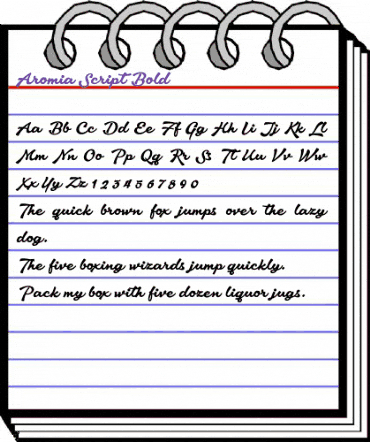 Aromia Script Bold
Aa Bb Cc Dd Ee Ff Gg Hh Ii Jj Kk Ll
Mm Nn Oo Pp Qq Rr Ss Tt Uu Vv Ww
Xx Yy Zz 1 2 3 4 5 6 7 8 9 0
The quick brown fox jumps over the lazy
dog.
The five boxing wizards jump quickly.
Pack my box with five dozen liquor jugs.